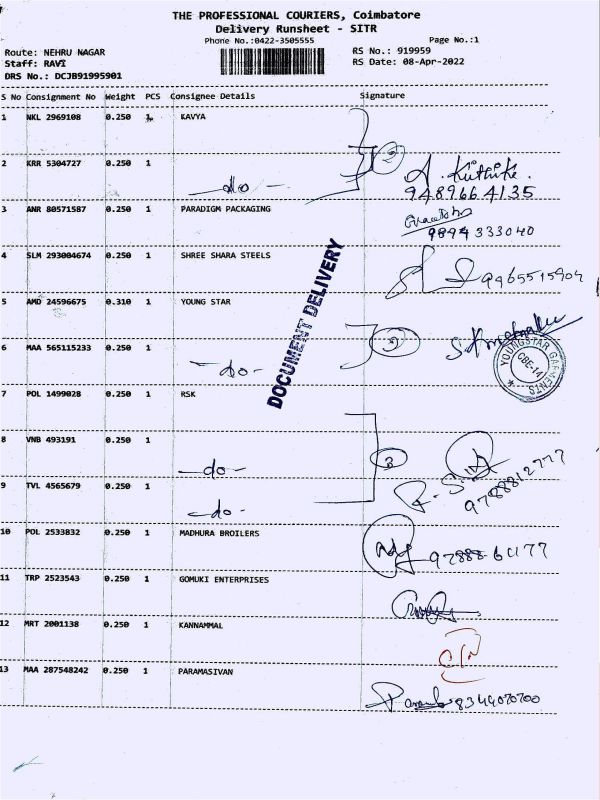 THE PROFESSIONAL COURIERS, Coimbatore
Delivery Runsheet - SITR
Phone No.:0422-3505555 Page No.:1
Route: NEHRU NAGAR RS No.: 919959
Staff: RAVI RS Date: 08-Apr-2022
DRS No.: DCJB91995901
S No Consignment No Weight PCS Consignee Details Signature
1 NKL 2969108 0.250 1 KAVYA
2 KRR 5304727 0.250 1 2
-do-
9489664135
3 ANR 80571587 0.250 1 PARADIGM PACKAGING
9894333040
4 SLM 293004674 0.250 1 SHREE SHARA STEELS
DOCUMENT DELIVERY
5 AMD 24596675 0.310 1 YOUNG STAR
6 MAA 565115233 0.250 1
-do-
YOUNGSTAR GARMENTS
CBE-14
7 POL 1499028 0.250 1 RSK
8 VNB 493191 0.250 1
-do- 3
9788812777
9 TVL 4565679 0.250 1
-do-
10 POL 2533832 0.250 1 MADHURA BROILERS
11 TRP 2523543 0.250 1 GOMUKI ENTERPRISES
12 MRT 2001138 0.250 1 KANNAMMAL
13 MAA 287548242 0.250 1 PARAMASIVAN